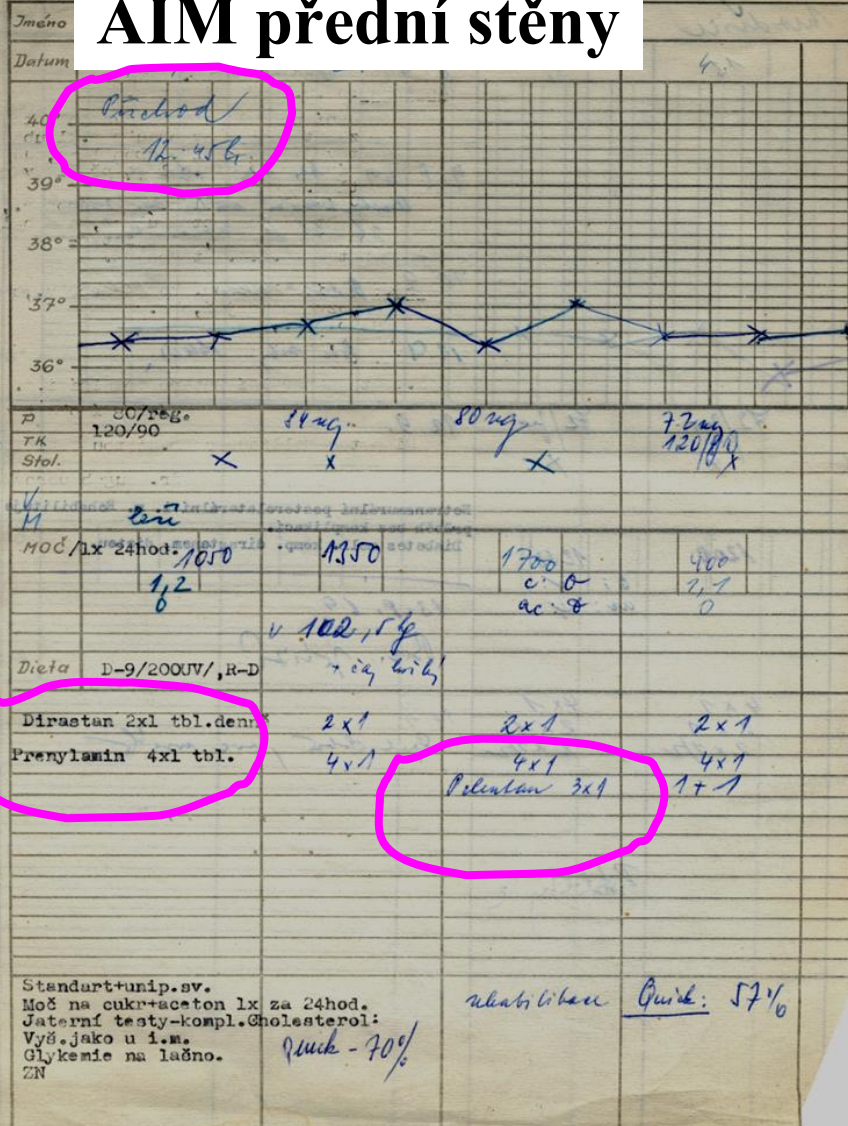 AIM přední stěny
Jméno
Datum
Příchod
12.45h.
40°
39°
38°
37°
36°
P 80/reg. 84 reg. 80 reg. 72 reg
TK 120/90 120/80
Stol. x x x x
V
M
MOČ/1x 24hod. 1050 1350 1700 400
1,2 c: 0 2,1
0 ac: 0 0
v 102,5 kg
Dieta D-9/200UV/,R-D + čaj hořký
Dirastan 2x1 tbl.denně 2x1 2x1 2x1
Prenylamin 4x1 tbl. 4x1 4x1 4x1
Pelentan 3x1 1+1
Standart+unip.sv. rehabilitace Quick: 57%
Moč na cukr+aceton 1x za 24hod.
Jaterní testy-kompl.Cholesterol:
Vyš.jako u i.m. Quick - 70%
Glykemie na lačno.
ZN